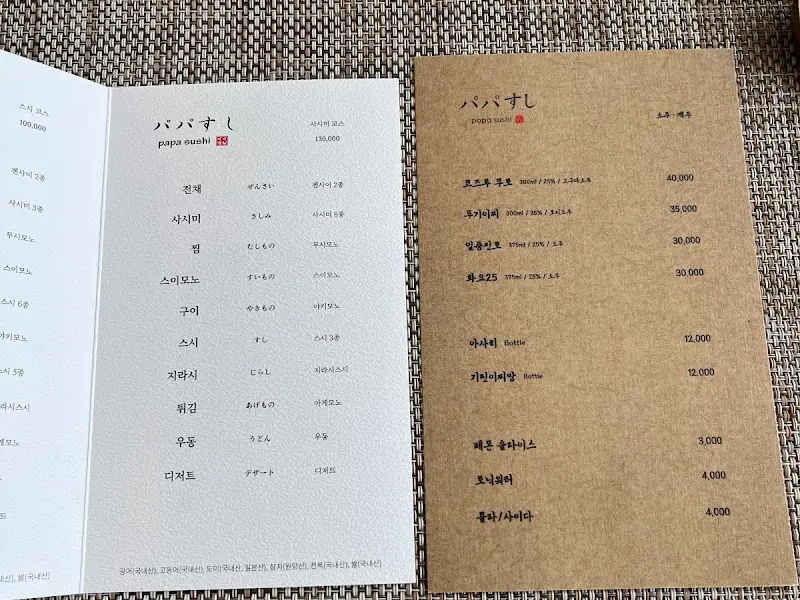 스시 코스
100,000
젠사이 2종
사시미 3종
무시모노
스이모노
스시 6종
야키모노
스시 5종
라시스시
게모노
드
(국내산), 쌀(국내산)
パパすし
papa sushi
사시미 코스
130,000
전채 ぜんさい 젠사이 2종
사시미 さしみ 사시미 8종
찜 むしもの 무시모노
스이모노 すいもの 스이모노
구이 やきもの 야키모노
스시 すし 스시 3종
지라시 じらし 지라시스시
튀김 あげもの 아게모노
우동 うどん 우동
디저트 デザート 디저트
광어(국내산), 고등어(국내산), 도미(국내산, 일본산), 참치(원양산), 전복(국내산), 쌀(국내산)
パパすし
papa sushi
소주 · 맥주
코즈루 쿠로 300ml / 25% / 고구마소주 40,000
무기이찌 300ml / 25% / 보리소주 35,000
일품진로 375ml / 25% / 소주 30,000
화요25 375ml / 25% / 소주 30,000
아사히 Bottle 12,000
기린이찌방 Bottle 12,000
레몬 슬라이스 3,000
토닉워터 4,000
콜라/사이다 4,000